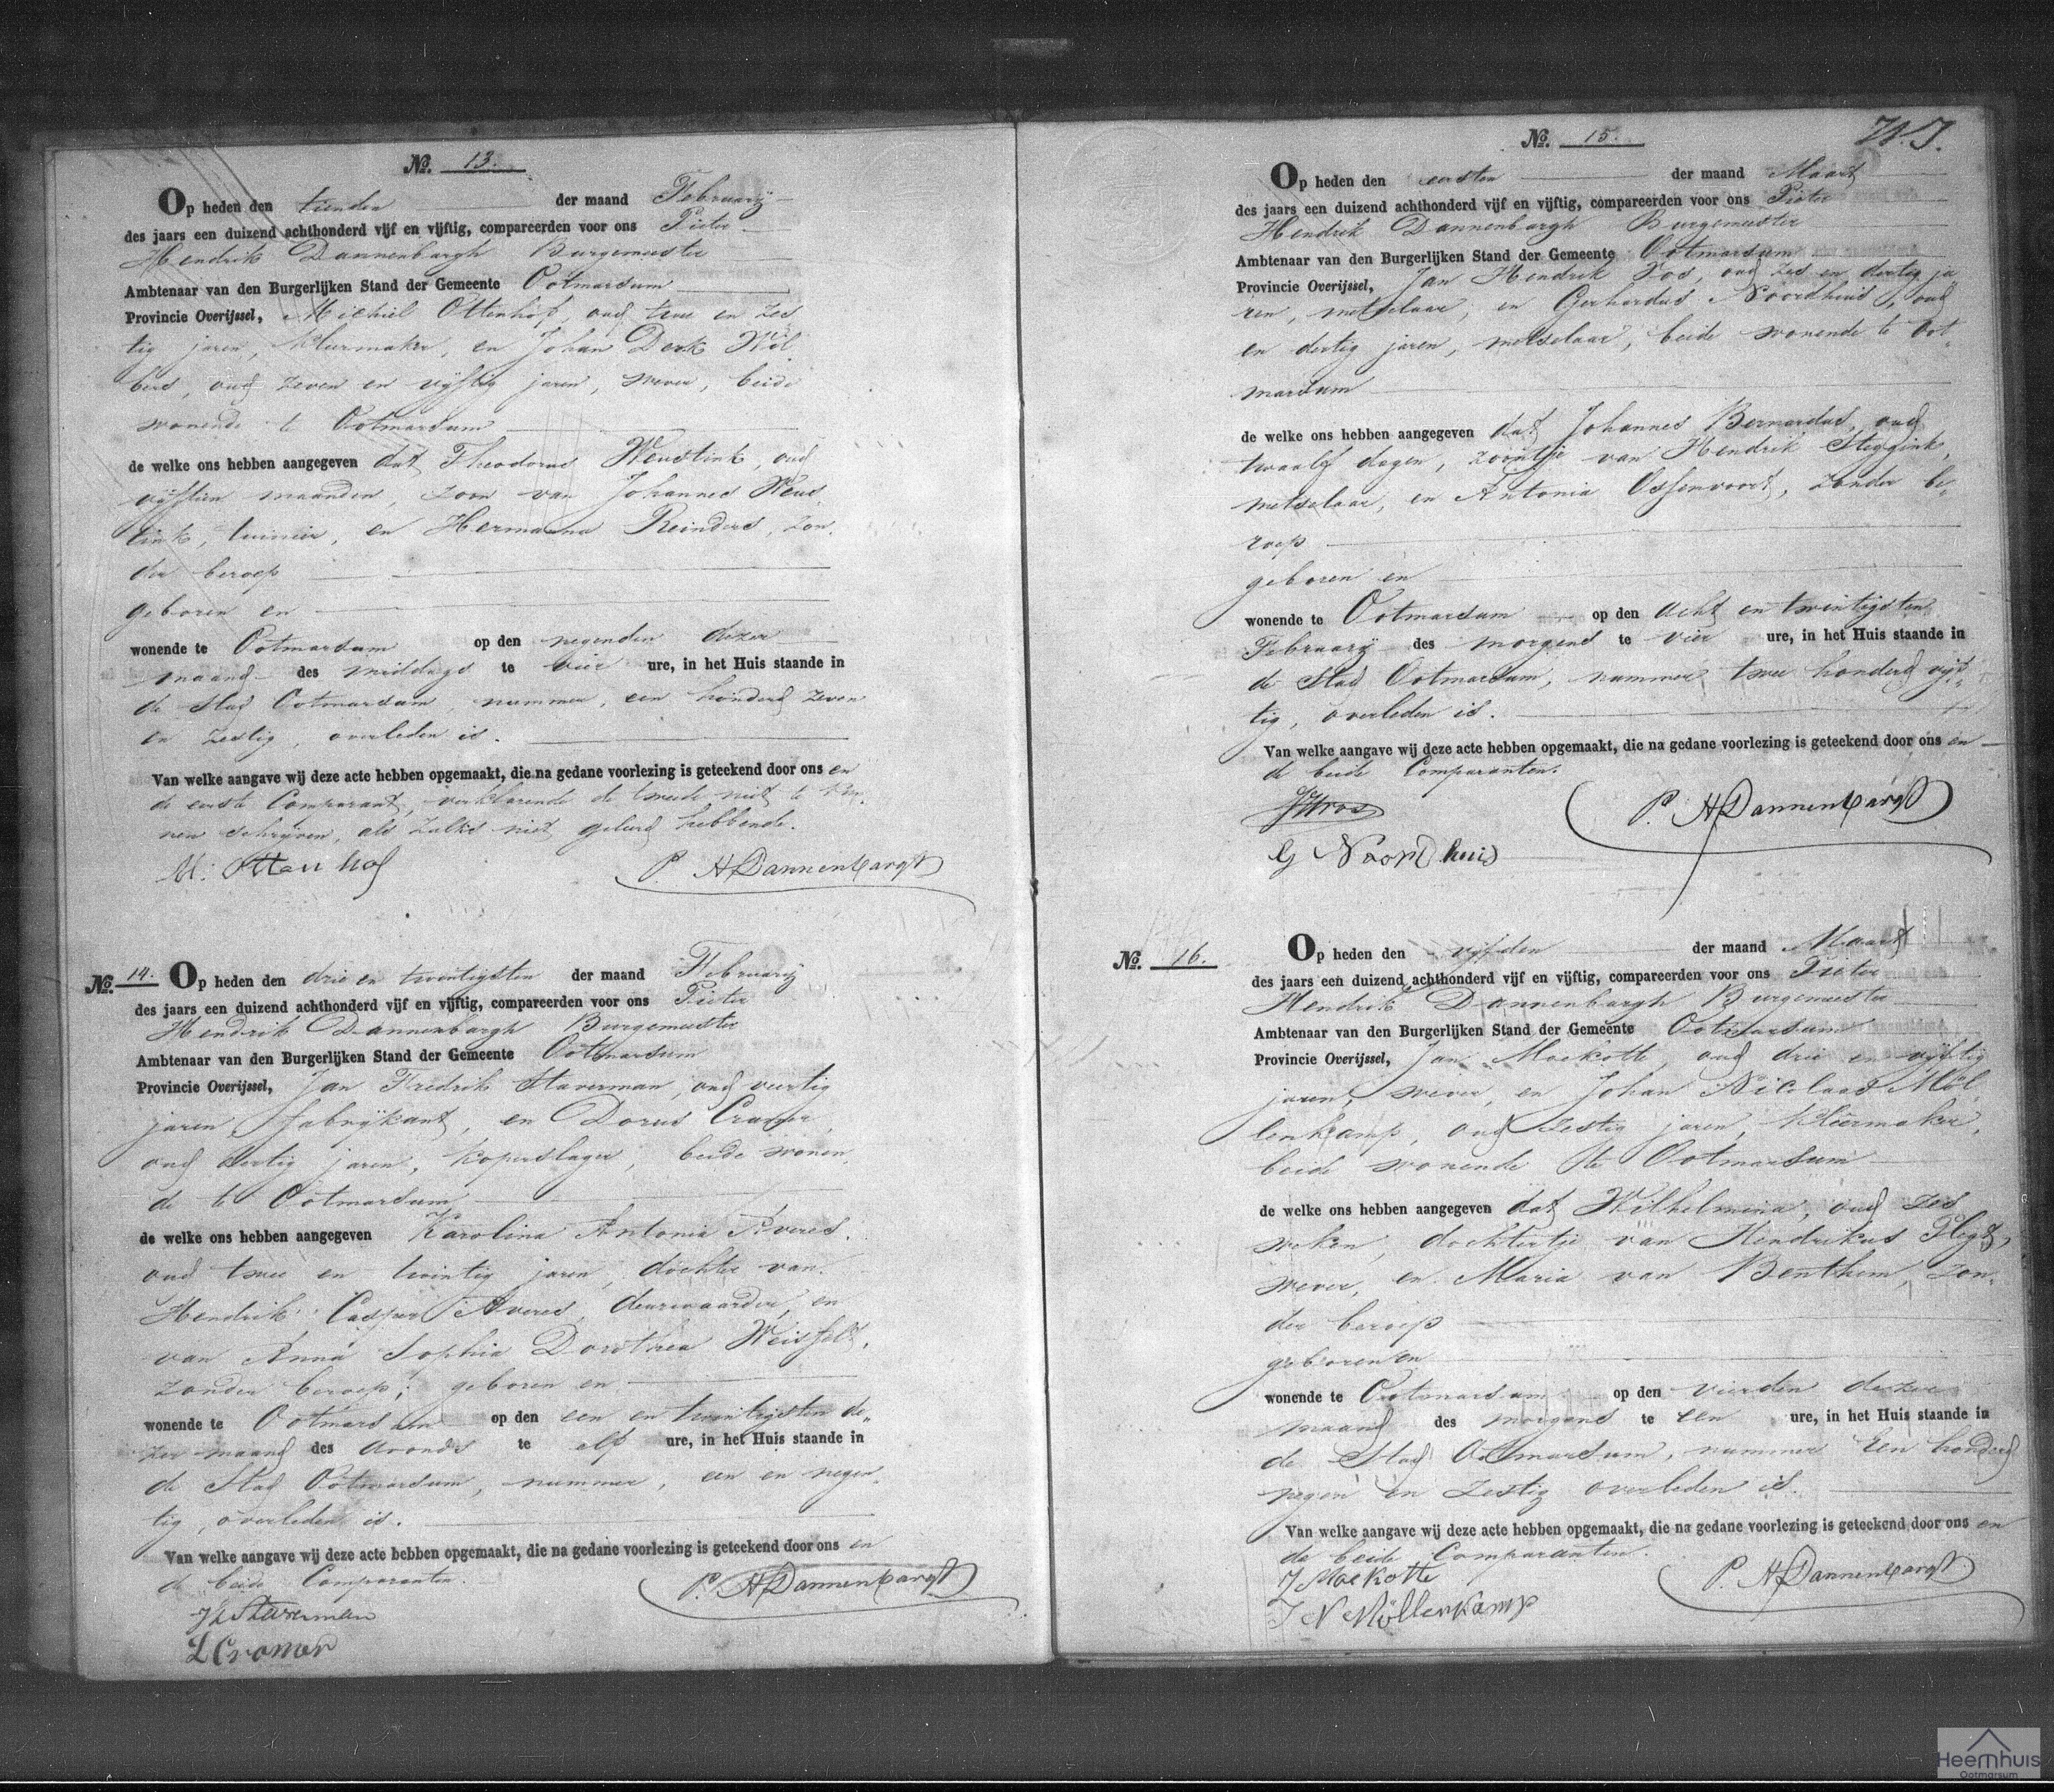 No. 13.
Op heden den tienden der maand February
des jaars een duizend achthonderd vijf en vijftig, compareerden voor ons Pieter
Hendrik Dannenbargh Burgemeester
Ambtenaar van den Burgerlijken Stand der Gemeente Ootmarsum
Provincie Overijssel, Michiel Ottenhof, oud twee en zes
tig jaren, kleermaker, en Johan Derk Wol
bers, oud zeven en vyftig jaren, wever, beide
wonende te Ootmarsum
de welke ons hebben aangegeven dat Theodorus Weustink, oud
vyftien maanden, zoon van Johannes Weus
tink, tuinier, en Hermanna Reinders, zon
der beroep
geboren en
wonende te Ootmarsum op den negenden dezer
maand des middags te vier ure, in het Huis staande in
de Stad Ootmarsum, nummer, een honderd zeven
en zestig, overleden is.
Van welke aangave wij deze acte hebben opgemaakt, die na gedane voorlezing is geteekend door ons en
de eerste Comparant, verklarende de tweede niet te kun
nen schryven, als zulks niet geleerd hebbende.
M: Ottenhof P. H Dannenbargh
No. 14. Op heden den drie en twintigsten der maand February
des jaars een duizend achthonderd vijf en vijftig, compareerden voor ons Pieter
Hendrik Dannenbargh Burgemeester
Ambtenaar van den Burgerlijken Stand der Gemeente Ootmarsum
Provincie Overijssel, Jan Fredrik Staverman, oud veertig
jaren, fabrykant, en Dorus Cramer,
oud dertig jaren, koperslager, beide wonen
de te Ootmarsum
de welke ons hebben aangegeven Karolina Antonia Averes,
oud twee en twintig jaren, dochter van
Hendrik Casper Averes, deurwaarder, en
van Anna Sophia Dorothea
zonder beroep, geboren en
wonende te Ootmarsum op den een en twintigsten de„
zer maand des avonds te elf ure, in het Huis staande in
de Stad Ootmarsum, nummer, een en negen
tig, overleden is.
Van welke aangave wij deze acte hebben opgemaakt, die na gedane voorlezing is geteekend door ons en
de beide Comparanten. P. H Dannenbargh
Staverman
Cramer
No. 15.
Op heden den eersten der maand Maart
des jaars een duizend achthonderd vijf en vijftig, compareerden voor ons Pieter
Hendrik Dannenbargh Burgemeester
Ambtenaar van den Burgerlijken Stand der Gemeente Ootmarsum
Provincie Overijssel, Jan Hendrik Vos, oud zes en dertig ja
ren, metselaar, en Gerhardus Noordhuis, oud
en dertig jaren, metselaar, beide wonende te Oot„
marsum
de welke ons hebben aangegeven dat Johannes Bernardus, oud
twaalf dagen, zoontje van Hendrik Steggink,
metselaar, en Antonia Ossenvoort, zonder be„
roep
geboren en
wonende te Ootmarsum op den acht en twintigsten
February des morgens te vier ure, in het Huis staande in
de Stad Ootmarsum, nummer twee honderd vyf„
tig, overleden is.
Van welke aangave wij deze acte hebben opgemaakt, die na gedane voorlezing is geteekend door ons en
de beide Comparanten.
JHVos P. H Dannenbargh
G Noordhuis
No. 16. Op heden den vyfden der maand Maart
des jaars een duizend achthonderd vijf en vijftig, compareerden voor ons Pieter
Hendrik Dannenbargh Burgemeester
Ambtenaar van den Burgerlijken Stand der Gemeente Ootmarsum
Provincie Overijssel, Jan Moekotte, oud drie en vyftig
jaren, wever, en Johan Nicolaas Mol
lenkamp, oud zestig jaren, kleermaker,
beide wonende te Ootmarsum
de welke ons hebben aangegeven dat Wilhelmina, oud zes
weken, dochtertje van Hendrikus Plegt,
wever, en Maria van Benthem, zon„
der beroep
geboren en
wonende te Ootmarsum op den vierden dezer
maand des morgens te een ure, in het Huis staande in
de Stad Ootmarsum, nummer Een honderd
negen en zestig overleden is.
Van welke aangave wij deze acte hebben opgemaakt, die na gedane voorlezing is geteekend door ons en
de beide Comparanten.
J Moekotte P. H Dannenbargh
J N Möllenkamp
Heemhuis
Ootmarsum